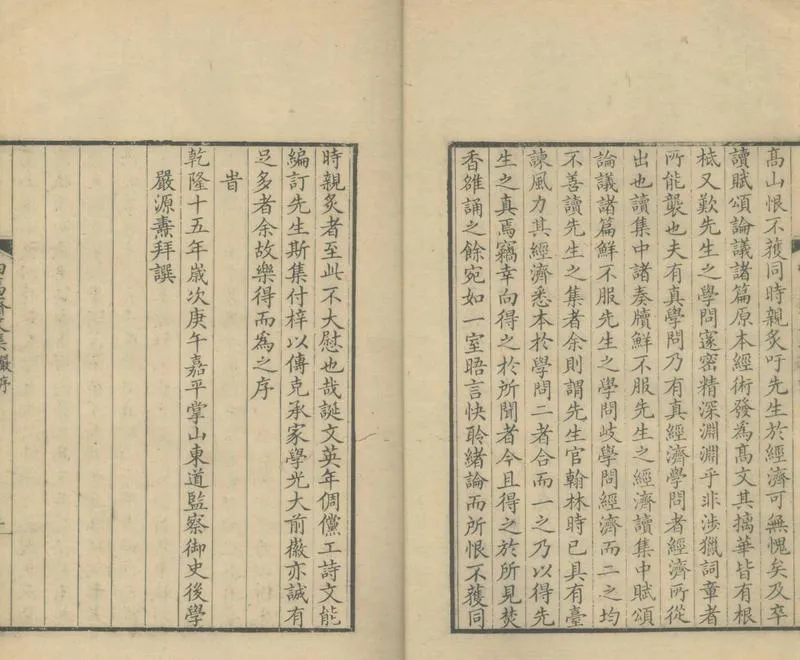 高山恨不獲同時親炙吁先生於經濟可無愧矣及卒
讀賦頌論議諸篇原本經術發為高文其摛華皆有根
柢又歎先生之學問邃密精深淵淵乎非涉獵詞章者
所能襲也夫有真學問乃有真經濟學問者經濟所從
出也讀集中諸奏牘鮮不服先生之經濟讀集中賦頌
論議諸篇鮮不服先生之學問歧學問經濟而二之均
不善讀先生之集者余則謂先生官翰林時已具有臺
諫風力其經濟悉本於學問二者合而一之乃以得先
生之真焉竊幸向得之於所聞者今且得之於所見焚
香雒誦之餘宛如一室晤言快聆緒論而所恨不獲同
時親炙者至此不大慰也哉誕文英年倜儻工詩文能
編訂先生斯集付梓以傳克承家學光大前徽亦誠有
足多者余故樂得而為之序
旹
乾隆十五年歲次庚午嘉平掌山東道監察御史後學
嚴源燾拜譔
嚴序